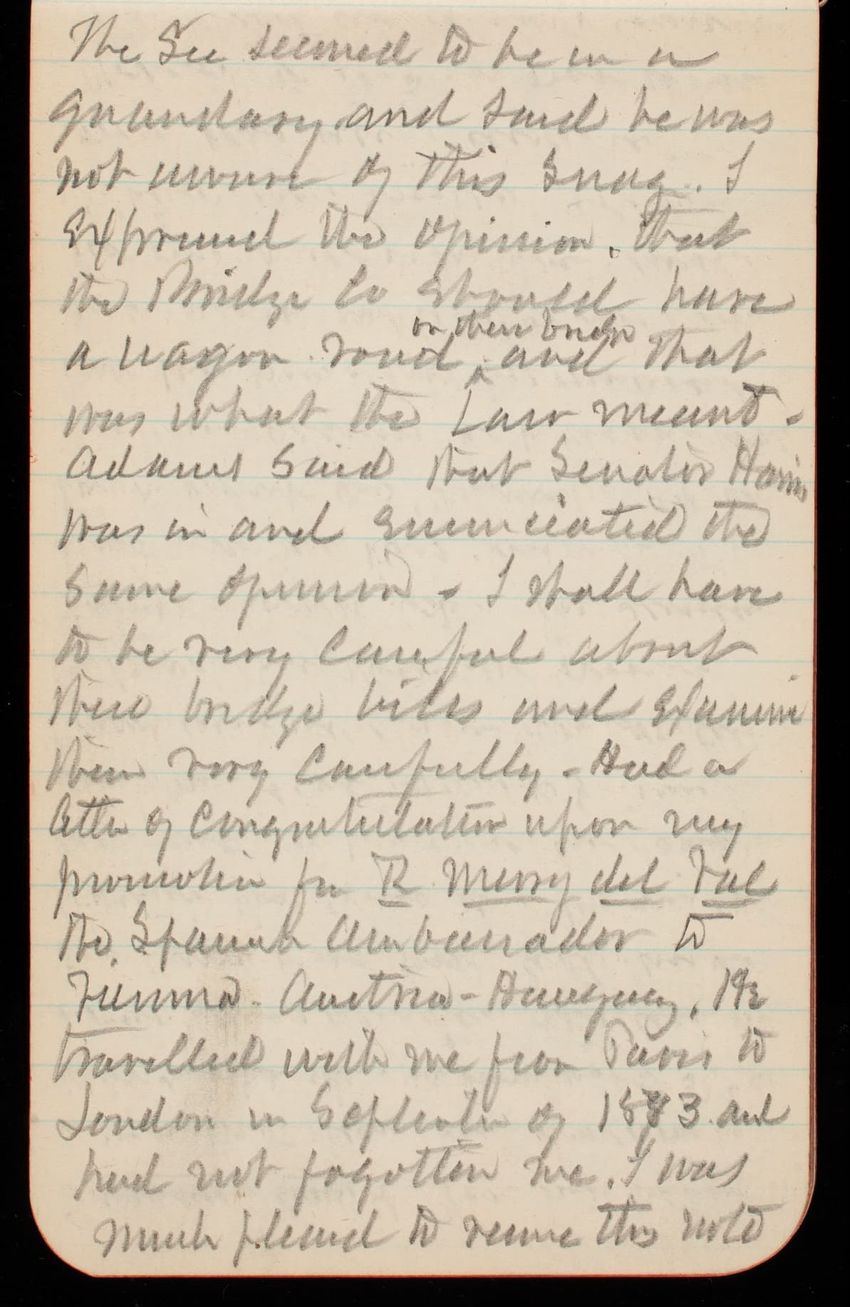 The Sec seemed to be in a
quandary and said he was
not aware of this snag. I
Expressed the opinion, that
the Bridge Co should have
on their bridge
a wagon road and that
was what the Law meant -
Adams said that Senator Harris
was in and enunciated the
same opinion - I shall have
to be very careful about
these bridge bills and Examine
them very carefully - Had a
letter of congratulation upon my
promotion from R Merry del Val
the Spanish Ambassador to
Vienna - Austria-Hungary. He
travelled with me from Paris to
London in September of 1883 and
had not forgotten me. I was
much pleased to receive this note